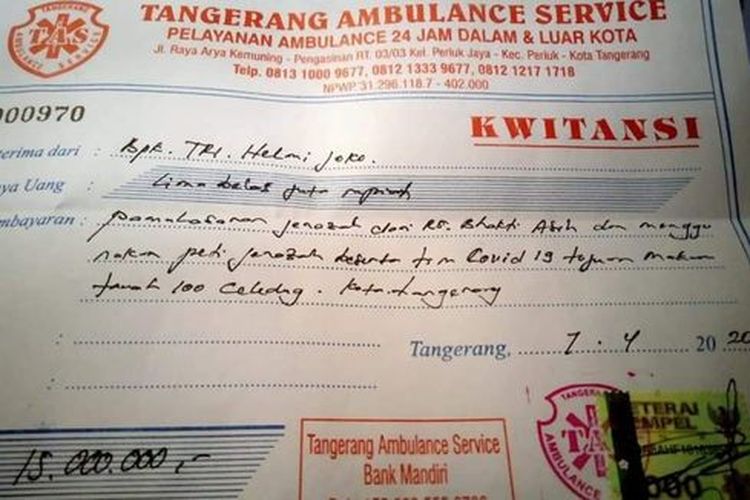 TANGERANG AMBULANCE SERVICE
PELAYANAN AMBULANCE 24 JAM DALAM & LUAR KOTA
Jl. Raya Arya Kemuning - Pengasinan RT. 03/03 Kel. Periuk Jaya - Kec. Periuk - Kota Tangerang
Telp. 0813 1000 9677, 0812 1333 9677, 0812 1217 1718
NPWP 31.296.118.7 - 402.000
TAS
000970
KWITANSI
terima dari : Bpk. TRI. Helmi Joko.
nya Uang : Lima belas juta rupiah
mbayaran : pamakasaran jenazah dari RS. Bhakti Asih dan menggu
nakan peti jenazah beserta tim Covid 19 tujuan makam
tanah 100 Celedug. Kota tangerang
Tangerang, 7 . 4 20 20
15.000.000,-
Tangerang Ambulance Service
Bank Mandiri
TANGERA
TA
AMBULANCE
ETERAI
EMPEL
000